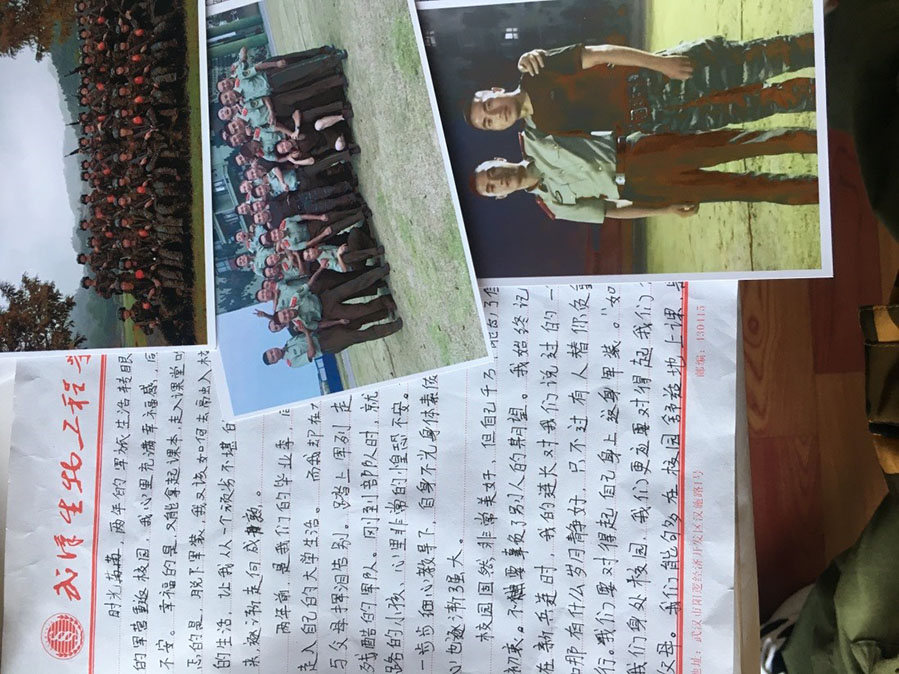 武汉生物工程学
时光荏苒，两年的军旅生活转眼
的军营重返校园，我心里充满幸福感，后
不安。幸福的是，又能拿起课本，走入课堂
忐的是，脱下军装，我又该如何去融入校
的生活，让我从一个顽劣不堪
来，逐渐走向成熟。
两年前，是我们的毕业季，
走入自己的大学生活。而我却在
与父母挥泪告别。踏上军列，走
残酷的军队。刚到部队时，就
路的小孩，心里非常的惶恐不安。
一步步细心教导下，自身不光身体素
心也逐渐强大。
校园固然非常美好，但自己千
初衷。不要辜负了别人的期望。我始终记
在新兵连时，我的连长对我们说过的一
那有什么岁月静好，只不过有人替你负
行。我们要对得起自己身上这身军装。"如
我们身处校园，我们更应要对得起我们
父母。我们能够多在校园舒适地上课，
地址：武汉市阳逻经济开发区汉施路1号 邮编：430415